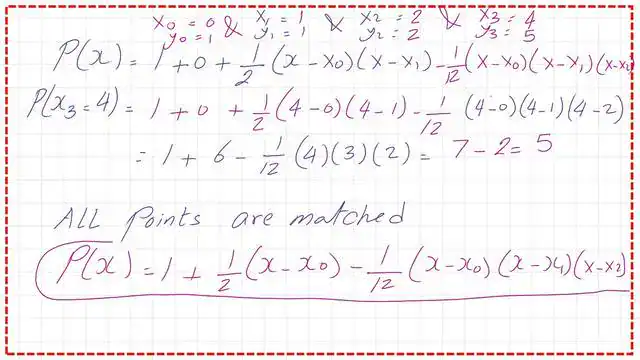 x0 = 0 & x1 = 1 & x2 = 2 & x3 = 4
y0 = 1 y1 = 1 y2 = 2 y3 = 5
P(x) = 1 + 0 + 1/2 (x - x0)(x - x1) - 1/12 (x - x0)(x - x1)(x - x2)
P(x3 = 4) = 1 + 0 + 1/2 (4-0)(4-1) - 1/12 (4-0)(4-1)(4-2)
= 1 + 6 - 1/12 (4)(3)(2) = 7 - 2 = 5
ALL Points are matched
P(x) = 1 + 1/2 (x - x0) - 1/12 (x - x0)(x - x1)(x - x2)